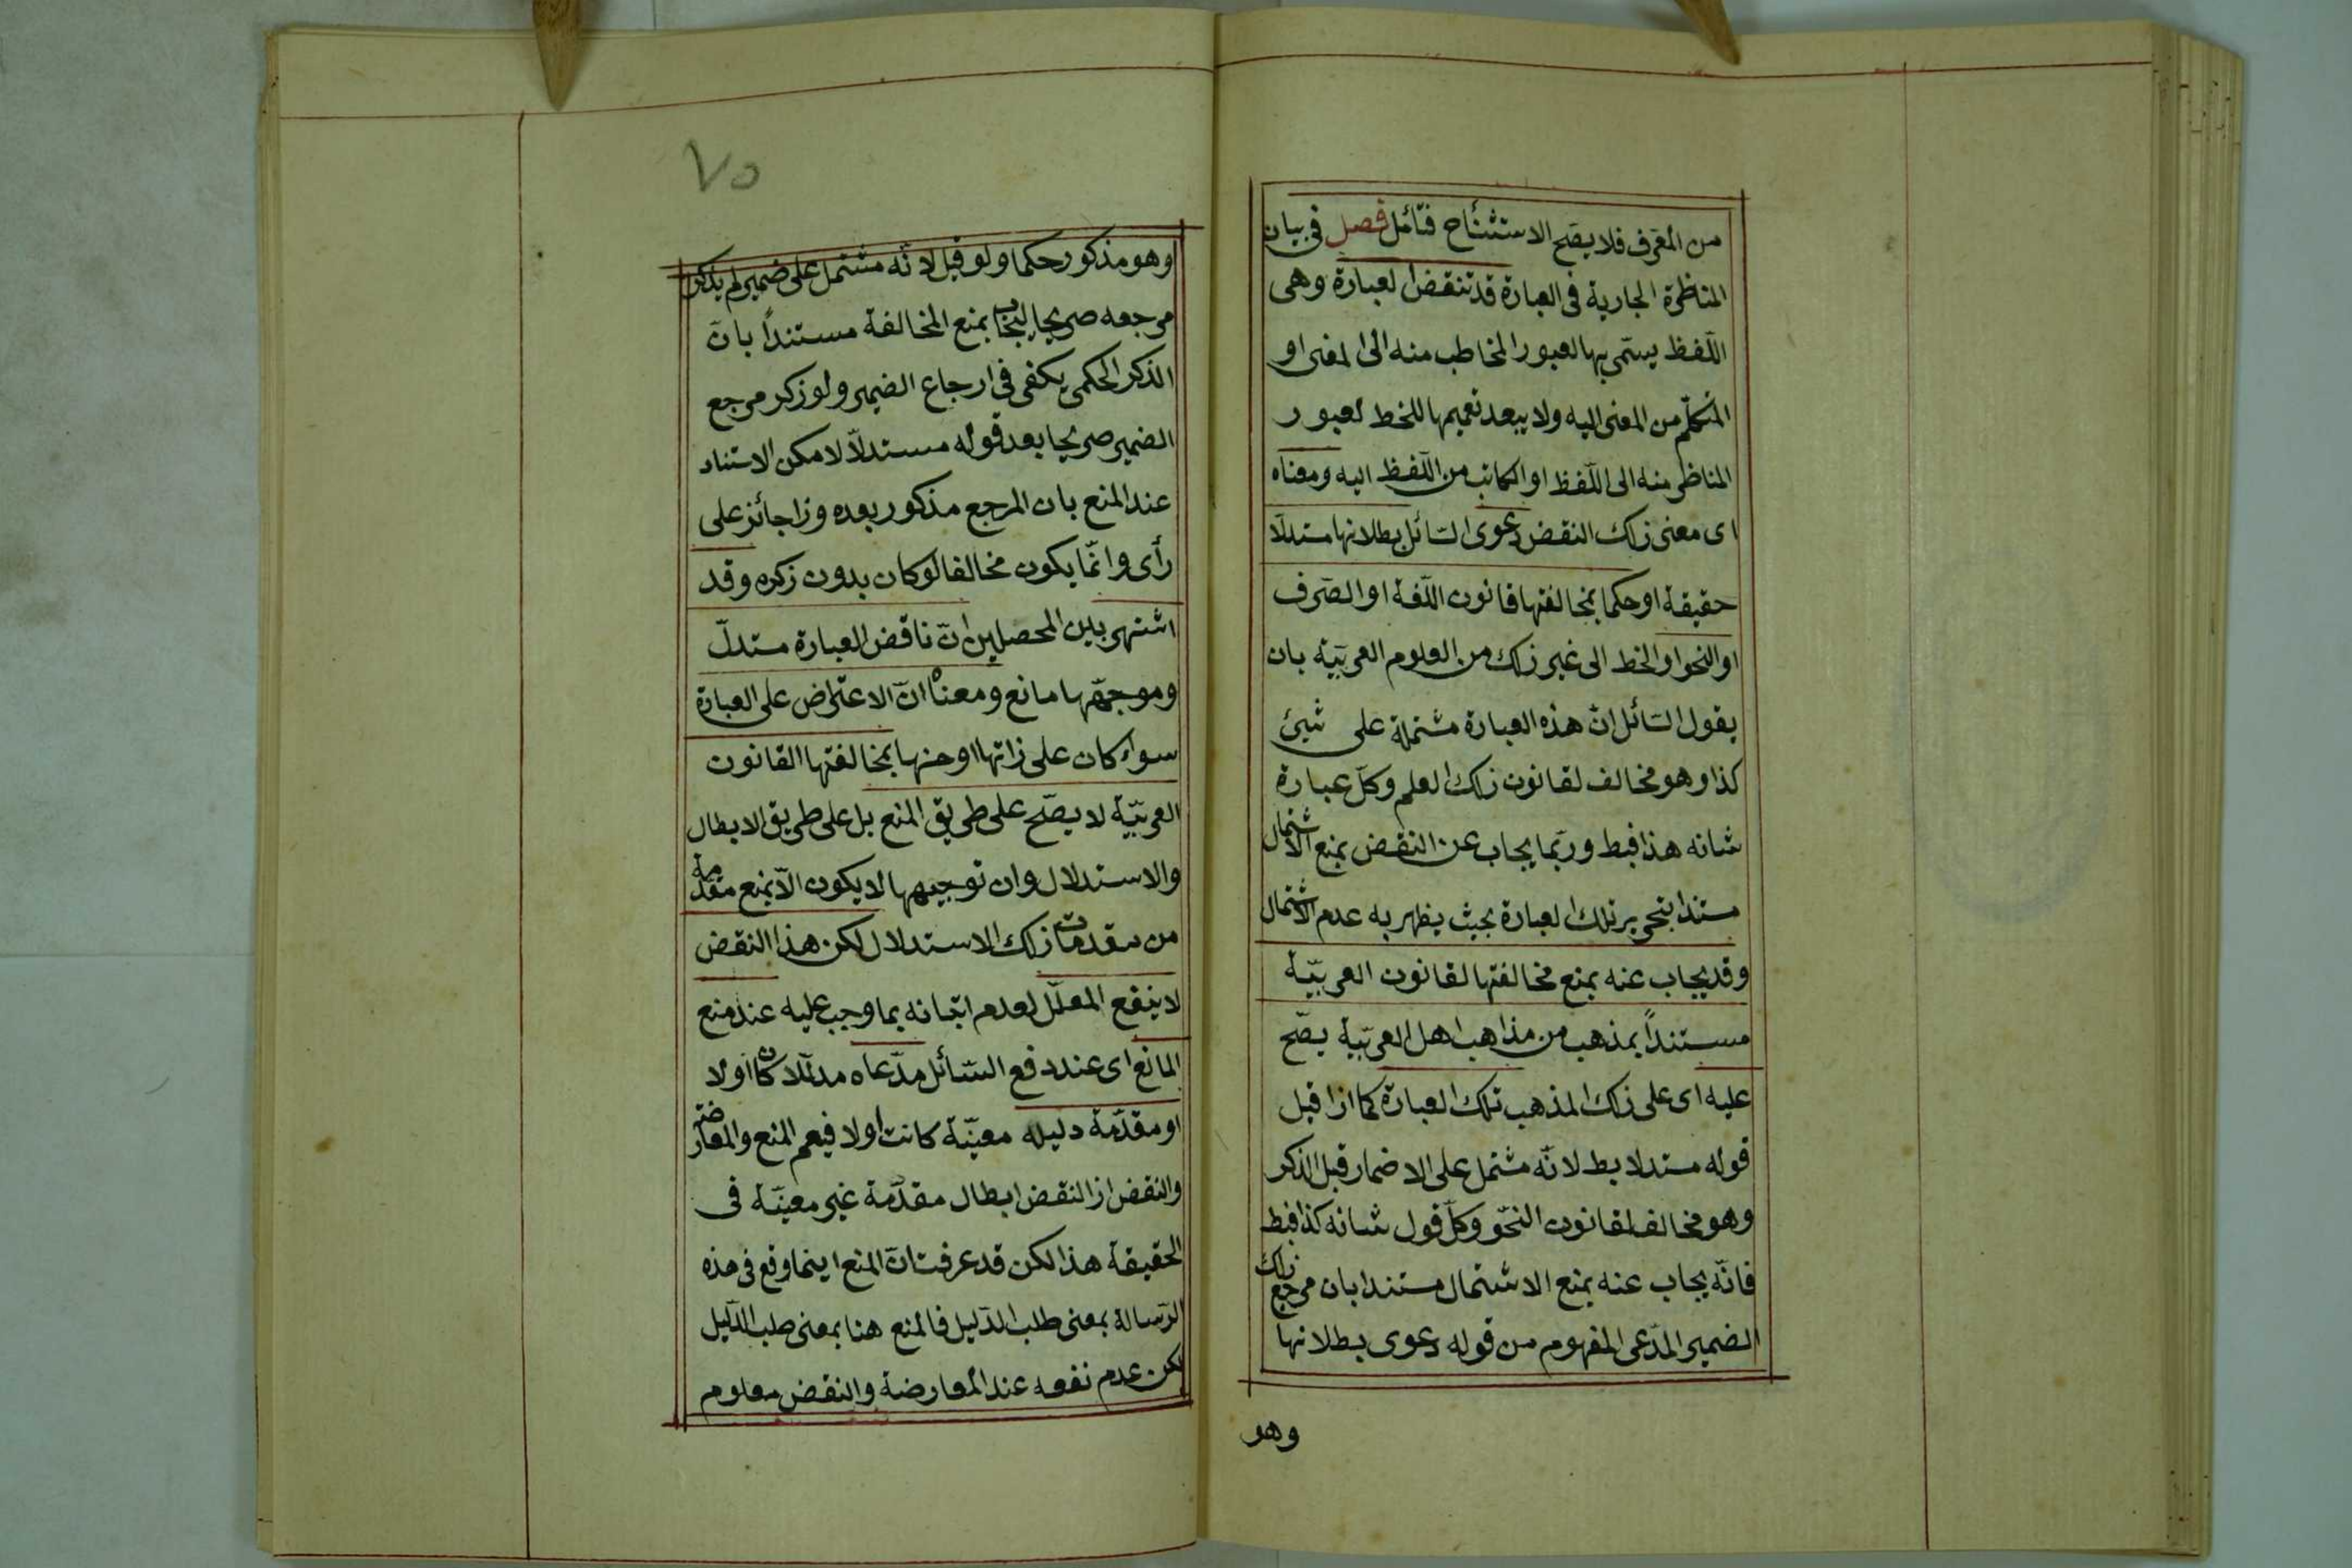 من المعرف فلا يصح الاستثناح فتأمل فصل فى بيان
المناظرة الجارية فى العبارة قد تنقض العبارة وهى
اللفظ يسمى بها لعبور المخاطب منه الى المعنى او
المتكلم من المعنى اليه ولا يبعد تعميمها للخط لعبور
المناظر منه الى اللفظ او الكاتب من اللفظ اليه ومعناه
اى معنى ذلك النقض دعوى السائل بطلانها مستدلا
حقيقة او حكما بمخالفتها قانون اللغة او الصرف
او النحو او الخط الى غير ذلك من العلوم العربية بان
يقول السائل ان هذه العبارة مشتملة على شيئ
كذا وهو مخالف لقانون ذلك العلم وكل عبارة
شانه هذا فبط وربما يجاب عن النقض بمنع الاشتمال
مستندا بتحرير تلك العبارة بحيث يظهر به عدم الاشتمال
وقد يجاب عنه بمنع مخالفتها لقانون العربية
مستنداً بمذهب من مذاهب اهل العربية يصح
عليه اى على ذلك المذهب تلك العبارة كما اذا قيل
قوله مستدلا بط لانه مشتمل على الاضمار قبل الذكر
وهو مخالف لقانون النحو وكل قول شانه كذا فبط
فانه يجاب عنه بمنع الاشتمال مستندا بان مرجع ذلك
الضمير المدعى المفهوم من قوله دعوى بطلانها
وهو
٧٥
وهو مذكور حكما ولو قيل لانه مشتمل على ضمير لم يذكر
مرجعه صريحا يجاب بمنع المخالفة مستنداً بان
الذكر الحكمى يكفى فى ارجاع الضمير ولو ذكر مرجع
الضمير صريحا بعد قوله مستدلا لامكن الاستناد
عند المنع بان المرجع مذكور بعده وذا جائز على
رأى وانما يكون مخالفا لو كان بدون ذكره وقد
اشتهر بين المحصلين ان ناقض العبارة مستدل
وموجهها مانع ومعناه ان الاعتراض على العبارة
سواء كان على ذاتها او حسنها بمخالفتها القانون
العربية لا يصح على طريق المنع بل على طريق الابطال
والاستدلال وان توجيهها لا يكون الا بمنع مقدمة
من مقدمات ذلك الاستدلال لكن هذا النقض
لا ينفع المعلل لعدم اتيانه بما وجب عليه عند منع
المانع اى عند دفع السائل مدعاه مدللا كان اولا
او مقدمة دليله معينة كانت اولا فيعم المنع والمعارضة
والنقض اذ النقض ابطال مقدمة غير معينة فى
الحقيقة هذا لكن قد عرفت ان المنع اينما وقع فى هذه
الرسالة بمعنى طلب الدليل فالمنع هنا بمعنى طلب الدليل
لكن عدم نفعه عند المعارضة والنقض معلوم